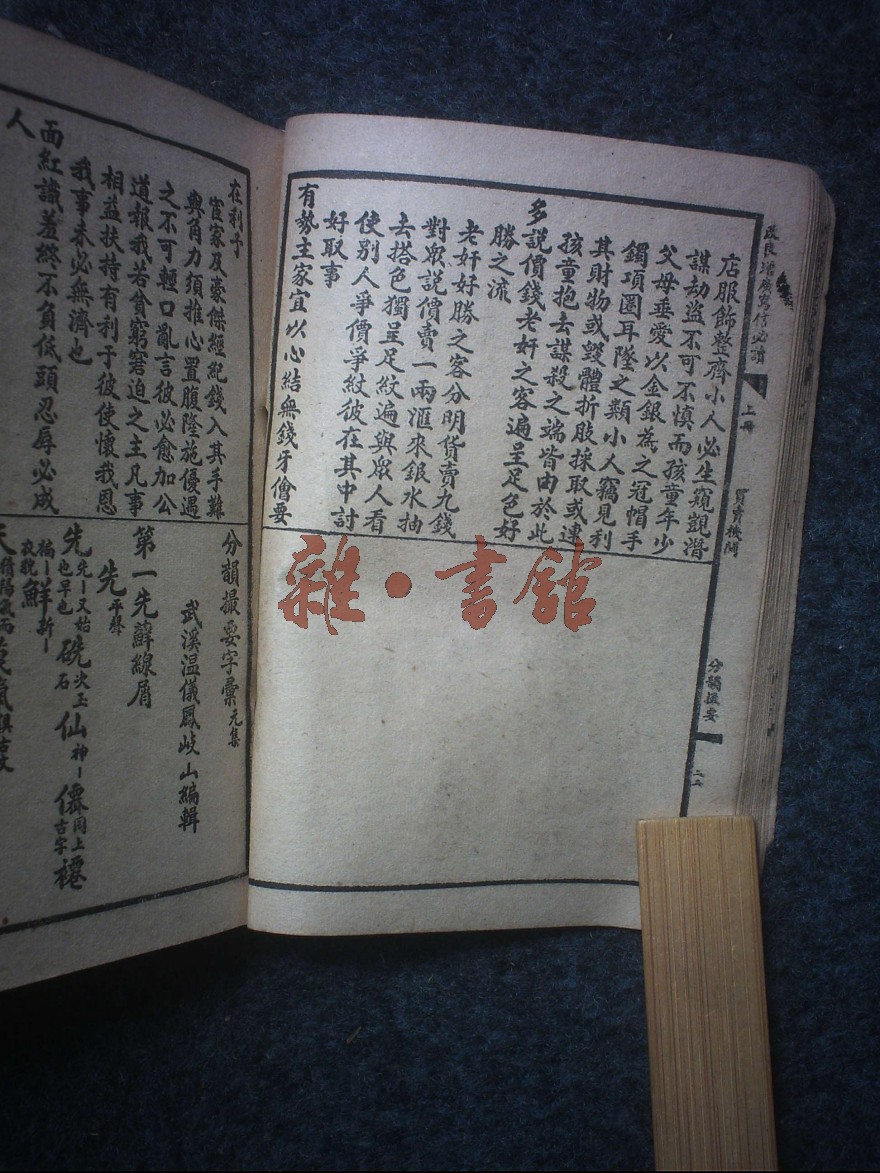 改良增廣寫信必讀
上冊
買賣機關
分韻撮要
店服飾整齊小人必生窺覬潛
謀劫盜不可不慎而孩童年少
父母垂愛以金銀為之冠帽手
鐲項圈耳墜之類小人竊見利
其財物或毀體折肢採取或連
孩童抱去謀殺之端皆由於此
多說價錢老奸之客遍呈足色好
勝之流
老奸好勝之客分明貨賣九錢
對眾說價賣一兩滙來銀水抽
去搭色獨呈足紋遍與眾人看
使別人爭價爭紋彼在其中討
好取事
有勢主家宜以心結無錢牙儈要
在利予
宦家及豪傑經紀錢入其手難
與角力須推心置腹隆施優遇
之不可輕口亂言彼必愈加公
道報我若貧窮窘迫之主凡事
相益扶持有利予彼使懷我恩
我事奉必無濟也
面紅識羞終不負低頭忍辱必成
人
分韻撮要字彙元集
武溪温儀鳳岐山編輯
第一先蘚線屑
先平聲
先先丨又姑也早也 硗次玉石 仙神丨 僊同上古字 褼
褊丨衣貌 鮮新丨
雜·書館